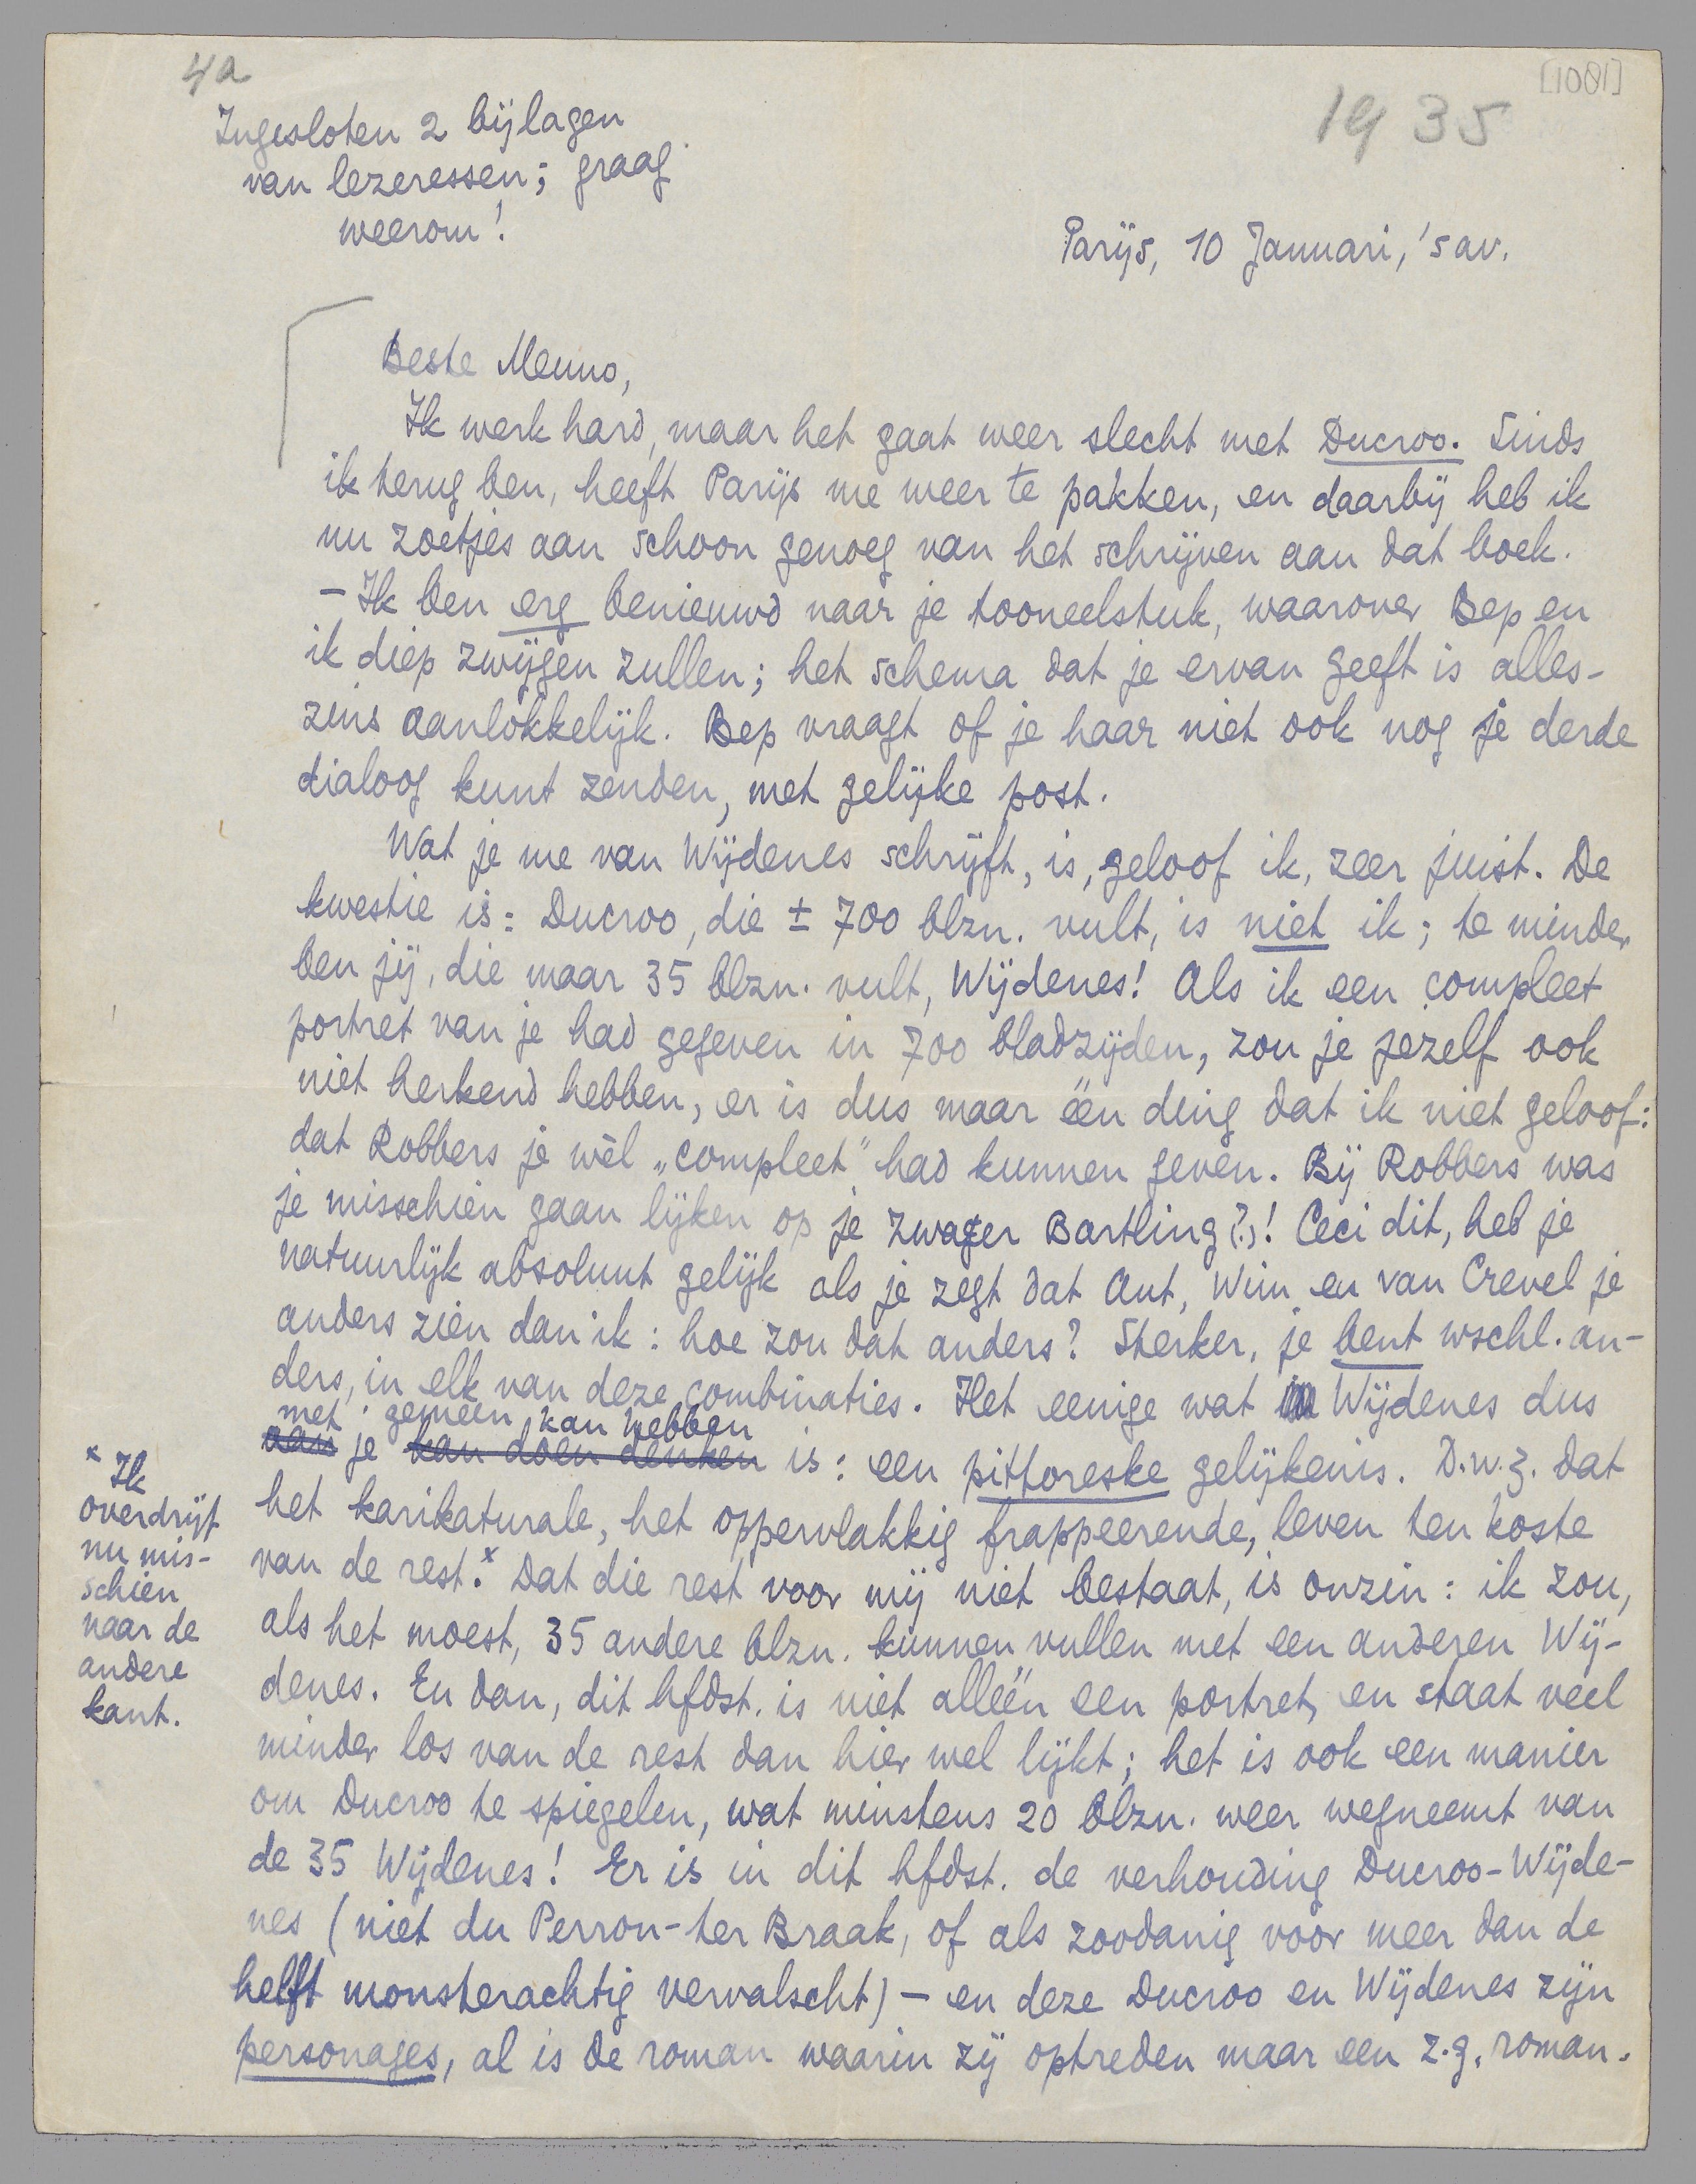 4a
[1001]
1935
Ingesloten 2 bijlagen
van lezeressen; graag
weerom!
Parijs, 10 Januari, 's av.
Beste Menno,
Ik werk hard, maar het gaat weer slecht met Ducroo. Sinds
ik terug ben, heeft Parijs me weer te pakken, en daarbij heb ik
nu zoetjes aan schoon genoeg van het schrijven aan dat boek.
- Ik ben erg benieuwd naar je tooneelstuk, waarover Bep en
ik diep zwijgen zullen; het schema dat je ervan geeft is alles-
zins aanlokkelijk. Bep vraagt of je haar niet ook nog je derde
dialoog kunt zenden, met gelijke post.
Wat je me van Wijdenes schrijft, is, geloof ik, zeer juist. De
kwestie is: Ducroo, die ± 700 blzn. vult, is niet ik; te minder
ben jij, die maar 35 blzn. vult, Wijdenes! Als ik een compleet
portret van je had gegeven in 700 bladzijden, zou je jezelf ook
niet herkend hebben, er is dus maar één ding dat ik niet geloof:
dat Robbers je wèl „compleet” had kunnen geven. Bij Robbers was
je misschien gaan lijken op je zwager Bartling (?)! Ceci dit, heb je
natuurlijk absoluut gelijk als je zegt dat Ant, Wim en van Crevel je
anders zien dan ik: hoe zou dat anders? Sterker, je bent wschl. an-
ders, in elk van deze combinaties. Het eenige wat Wijdenes dus
met gemeen kan hebben
aan je kan doen denken is: een pittoreske gelijkenis. D.w.z. dat
het karikaturale, het oppervlakkig frappeerende, leven ten koste
van de rest.* Dat die rest voor mij niet bestaat, is onzin: ik zou,
als het moest, 35 andere blzn. kunnen vullen met een anderen Wij-
denes. En dan, dit hfdst. is niet alléén een portret, en staat veel
minder los van de rest dan hier wel lijkt; het is ook een manier
om Ducroo te spiegelen, wat minstens 20 blzn. weer wegneemt van
de 35 Wijdenes! Er is in dit hfdst. de verhouding Ducroo-Wijde-
nes (niet du Perron-ter Braak, of als zoodanig voor meer dan de
helft monsterachtig vervalscht) - en deze Ducroo en Wijdenes zijn
personages, al is de roman waarin zij optreden maar een z.g. roman.
* Ik
overdrijf
nu mis-
schien
naar de
andere
kant.